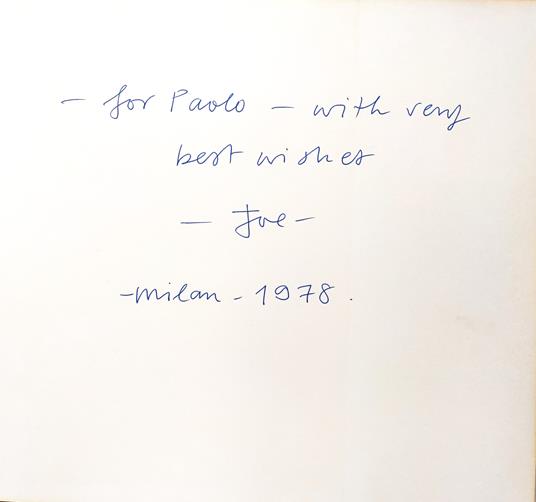 - for Paolo - with very
best wishes
- Joe -
- Milan - 1978.